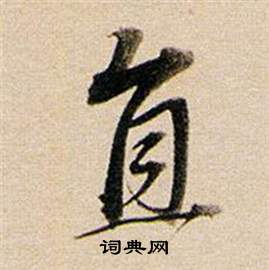 直
词典网